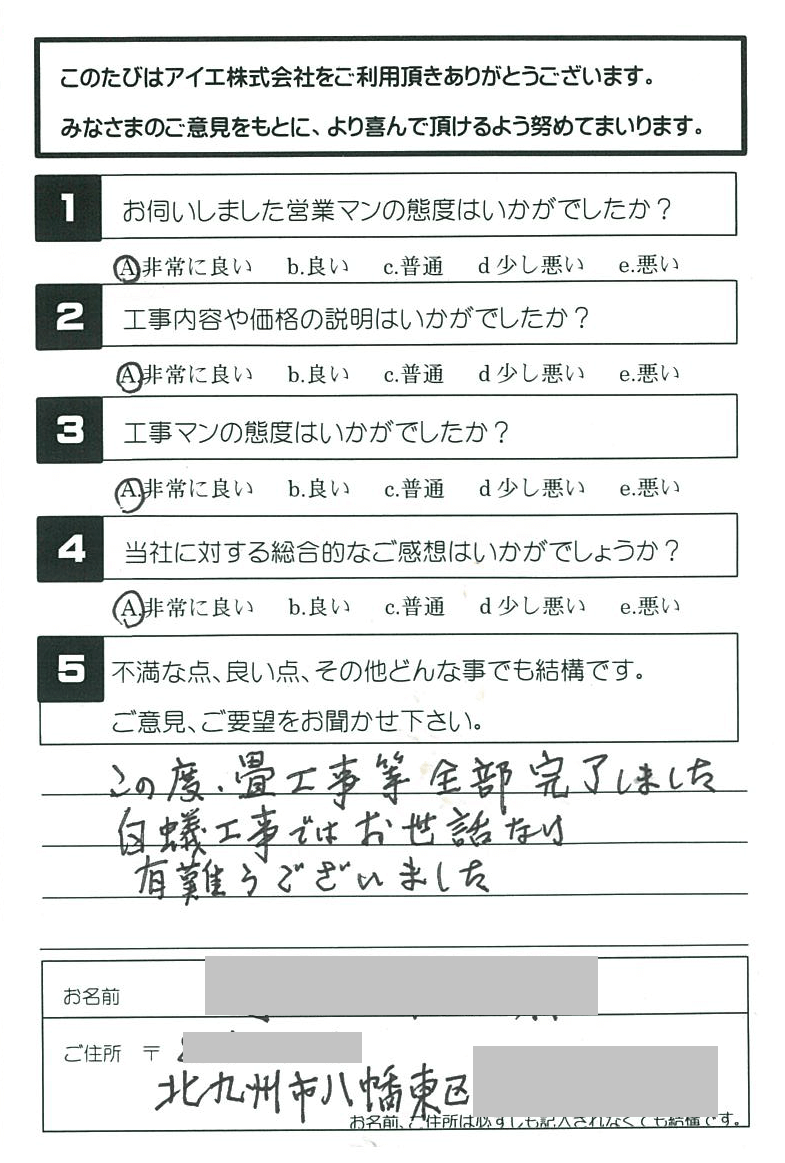 このたびはアイエ株式会社をご利用頂きありがとうございます。
みなさまのご意見をもとに、より喜んで頂けるよう努めてまいります。
1 お伺いしました営業マンの態度はいかがでしたか？
A.非常に良い b.良い c.普通 d 少し悪い e.悪い
2 工事内容や価格の説明はいかがでしたか？
A.非常に良い b.良い c.普通 d 少し悪い e.悪い
3 工事マンの態度はいかがでしたか？
A.非常に良い b.良い c.普通 d 少し悪い e.悪い
4 当社に対する総合的なご感想はいかがでしょうか？
A.非常に良い b.良い c.普通 d 少し悪い e.悪い
5 不満な点、良い点、その他どんな事でも結構です。
ご意見、ご要望をお聞かせ下さい。
この度、畳工事等全部完了しました
白蟻工事ではお世話なり
有難うございました
お名前
ご住所 〒
北九州市八幡東区
お名前、ご住所は必ずしも記入されなくても結構です。